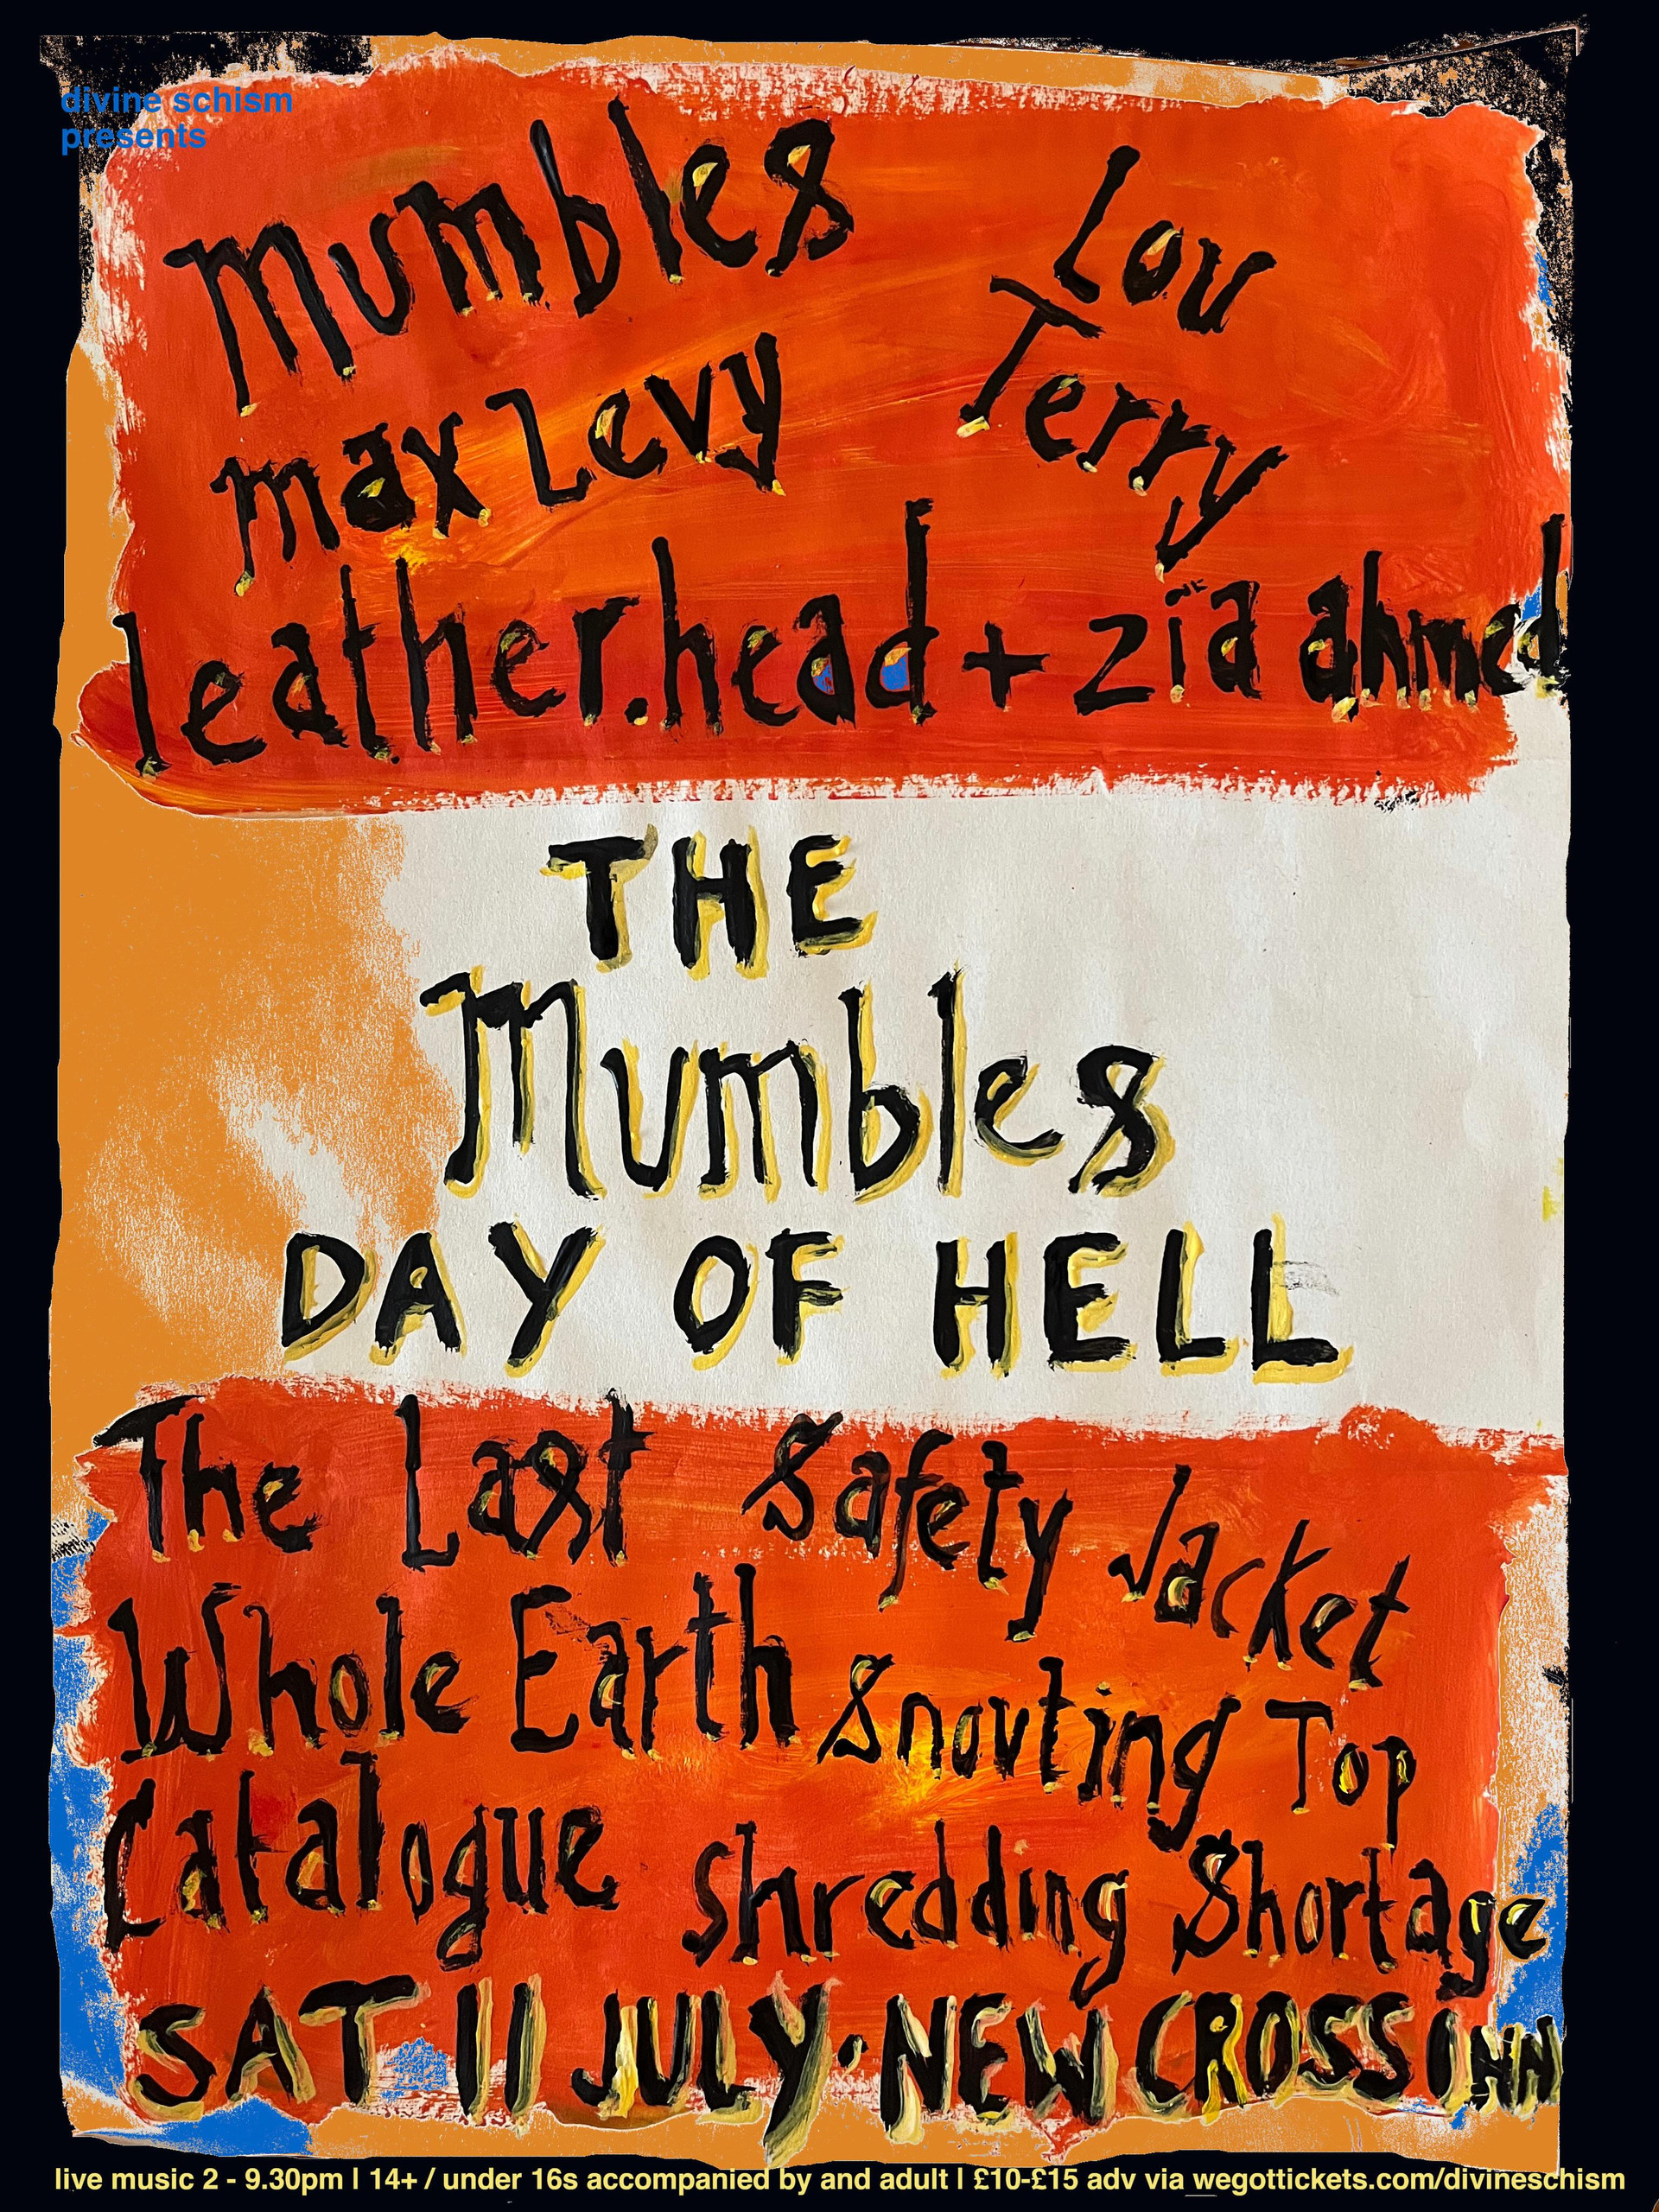 divine schism
presents
Mumbles
Lou
Terry
max Levy
leather.head + zia ahmed
THE
Mumbles
DAY OF HELL
The Last Safety Jacket
Whole Earth
Catalogue
Snouting Top
Shredding Shortage
SAT 11 JULY · NEW CROSS INN
live music 2 - 9.30pm | 14+ / under 16s accompanied by and adult | £10-£15 adv via wegottickets.com/divineschism